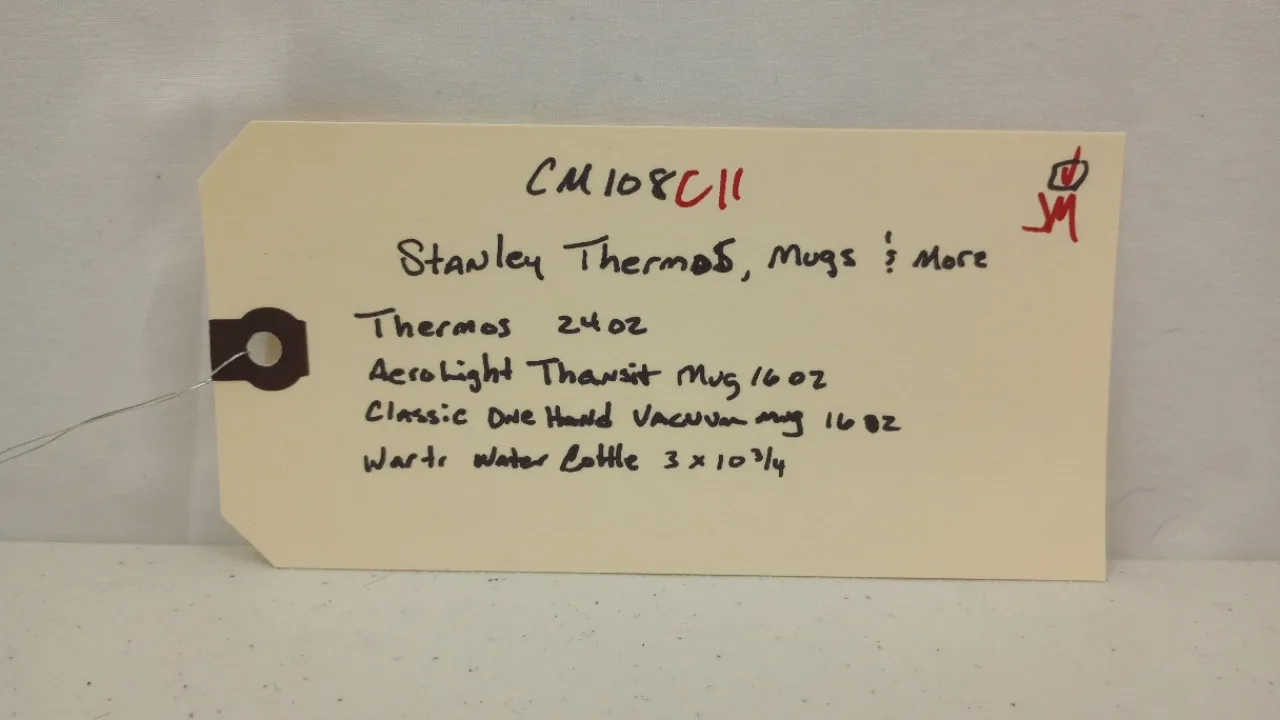 CM108C11
JM
Stanley Thermos, Mugs & More
Thermos 24oz
AeroLight Thansit Mug 16 oz
Classic One Hand Vacuum Mug 16 oz
Wartr Water Bottle 3 x 10 3/4